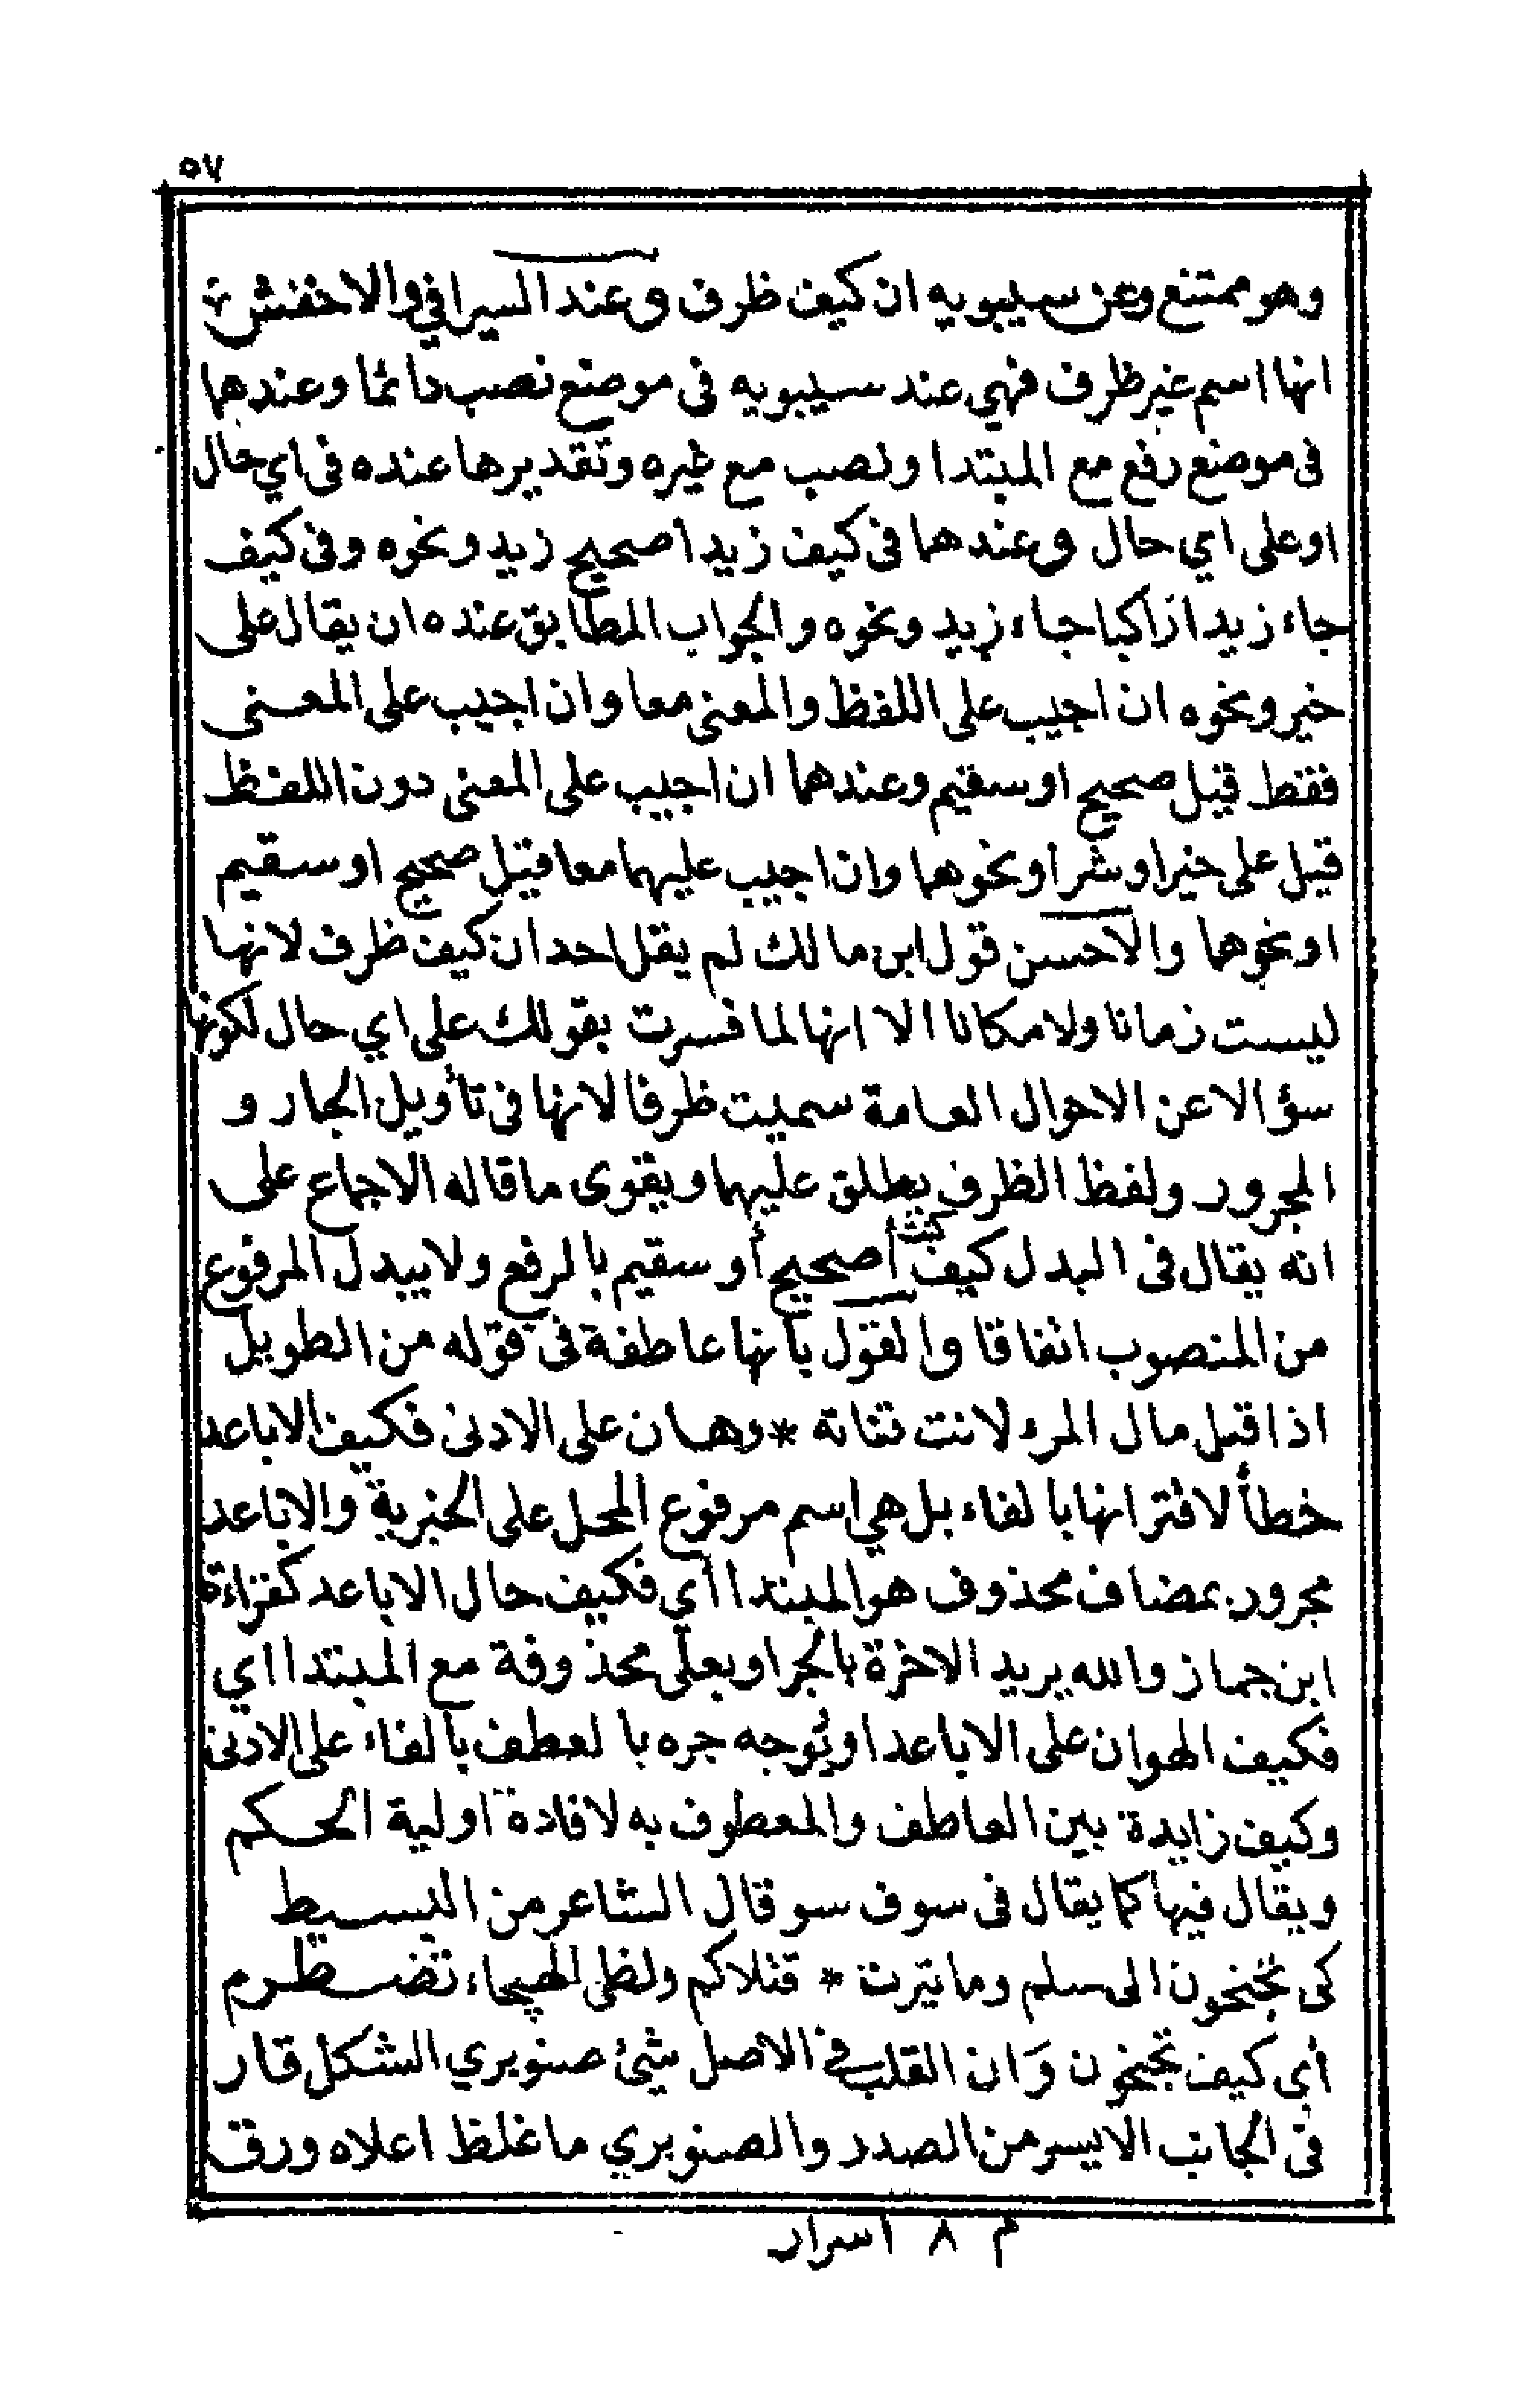 ٥٧
وهو ممتنع وعن سيبويه ان كيف ظرف وعند السيرافي والاخفش
انها اسم غير ظرف فهي عند سيبويه فى موضع نصب دائما وعندهما
فى موضع رفع مع المبتدا ونصب مع غيره وتقديرها عنده فى اي حال
او على اي حال وعندهما فى كيف زيد أصحيح زيد ونحوه وفى كيف
جاء زيد ازاكبا جاء زيد ونحوه والجواب المطابق عنده ان يقال على
خير ونحوه ان اجيب على اللفظ والمعنى معا وان اجيب على المعنى
فقط قيل صحيح او سقيم وعندهما ان اجيب على المعنى دون اللفظ
قيل على خير او شر او نحوهما وان اجيب عليهما معا قيل صحيح او سقيم
او نحوهما والاحسن قول ابن مالك لم يقل احد ان كيف ظرف لانها
ليست زمانا ولا مكانا الا انها لما فسرت بقولك على اي حال لكونها
سؤالا عن الاحوال العامة سميت ظرفا لانها فى تأويل الجار و
المجرور ولفظ الظرف يطلق عليهما ويقوى ما قاله الاجماع على
انه يقال فى البدل كيف أنت أصحيح أو سقيم بالرفع ولا يبدل المرفوع
من المنصوب اتفاقا والقول بانها عاطفة فى قوله من الطويل
اذا قيل مال المرء لانت قناته * وهان على الادنى فكيف الاباعد
خطأ لاقترانها بالفاء بل هي اسم مرفوع المحل على الخبرية والاباعد
مجرور بمضاف محذوف هو المبتدا اي فكيف حال الاباعد كقراءة
ابن جماز والله يريد الاخرة بالجر او بعلى محذوفة مع المبتدا اي
فكيف الهوان على الاباعد او يوجه جره بالعطف بالفاء على الادنى
وكيف زايدة بين العاطف والمعطوف به لافادة اولية الحكم
ويقال فيها كما يقال فى سوف سو قال الشاعر من البسيط
كى تجنحون الى سلم وما يترت * قتلاكم ولظى الهيجاء تضطرم
أي كيف تجنحون وَان القلب فى الاصل شئ صنوبري الشكل قار
فى الجانب الايسر من الصدر والصنوبري ما غلظ اعلاه ورق
م ٨ اسرار